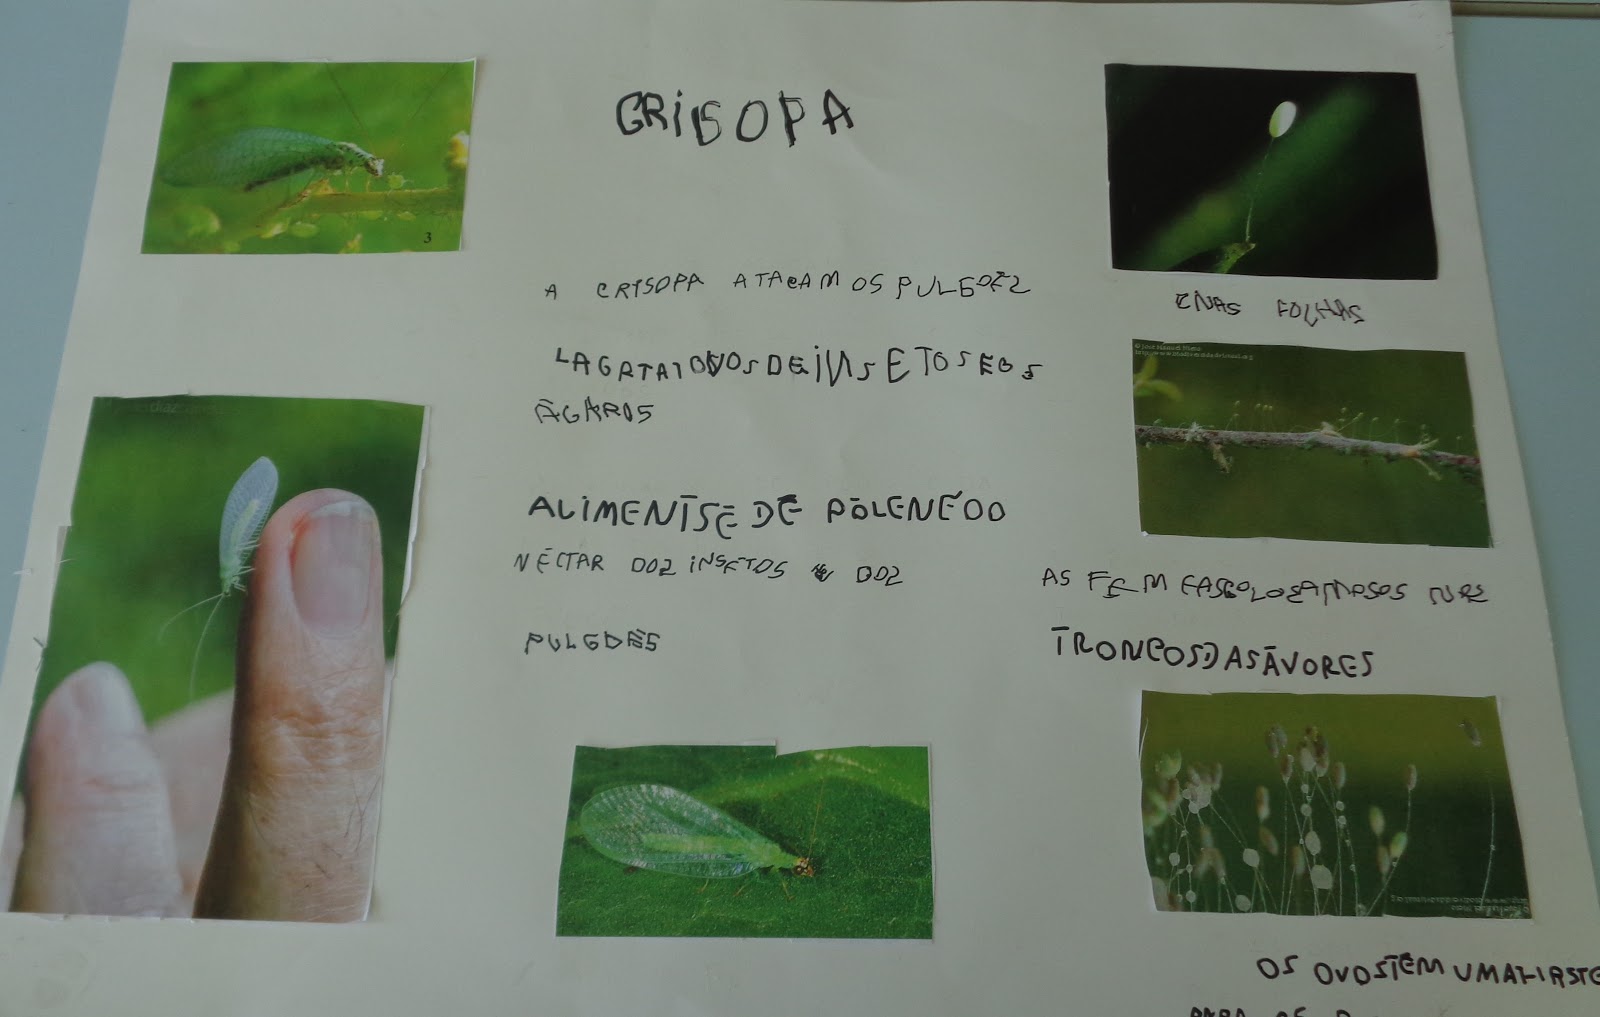 CRISOPA
A CRISOPA ATACAM OS PULGÕES
LAGARTAS OVOS DE INSETOS E OS
ÁGAROS
ALIMENTSE DE PÓLEN E DO
NÉCTAR DOS INSETOS DOS
PULGÕES
3
E NAS FOLHAS
© José Manuel
AS FEMEAS COLOCAM OS OVOS NAS
TRONCOS DAS ÁVORES
OS OVOS TÊM UMA